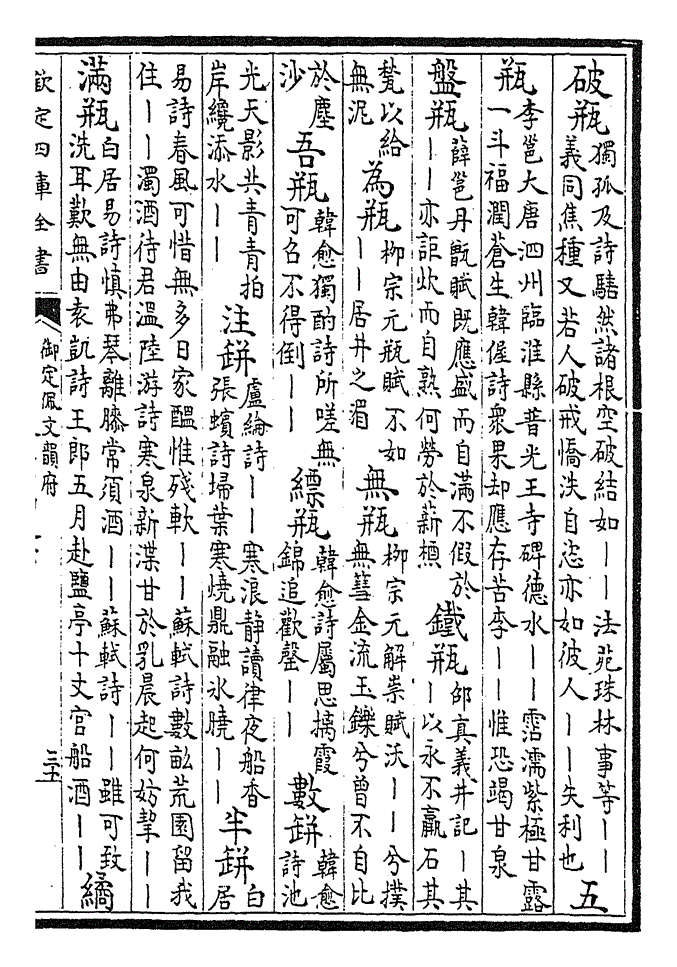 破瓶獨孤及詩騞然諸根空破結如一一法苑珠林事等一一
義同焦種又若人破戒憍泆自恣亦如彼人一一失利也五
瓶李邕大唐泗州臨淮縣普光王寺碑德水一一霑濡紫極甘露
一斗福潤蒼生韓偓詩衆果却應存苦李一一惟恐竭甘泉
盤瓶薛邕丹甑賦既應盛而自滿不假於
一一亦詎炊而自熟何勞於薪槱鐵瓶邵真義井記一其
一以永不羸石其
甃以給
無泥為瓶柳宗元瓶賦不如
一一居井之湄無瓶柳宗元解祟賦沃一一兮撲
無篲金流玉鑠兮曾不自比
於塵
沙吾瓶韓愈獨酌詩所嗟無
可召不得倒一一縹瓶韓愈詩屬思摛霞
錦追歡罄一一數缾韓愈
詩池
光天影共青青拍
岸纔添水一一注缾盧綸詩一一寒浪靜讀律夜船香
張蠙詩掃葉寒燒鼎融氷曉一一半缾白
居
易詩春風可惜無多日家醖惟殘軟一一蘇軾詩數畝荒園留我
住一一濁酒待君溫陸游詩寒泉新渫甘於乳晨起何妨挈一一
滿瓶白居易詩慎弗琴離膝常須酒一一蘇軾詩一一雖可致
洗耳歎無由袁凱詩王郎五月赴鹽亭十丈宮船酒一一繘
欽定四庫全書
御定佩文韻府
三十